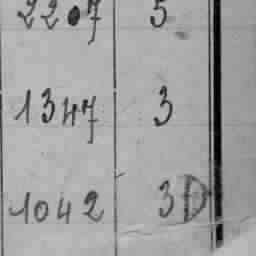 2207 5
1347 3
1042 3D